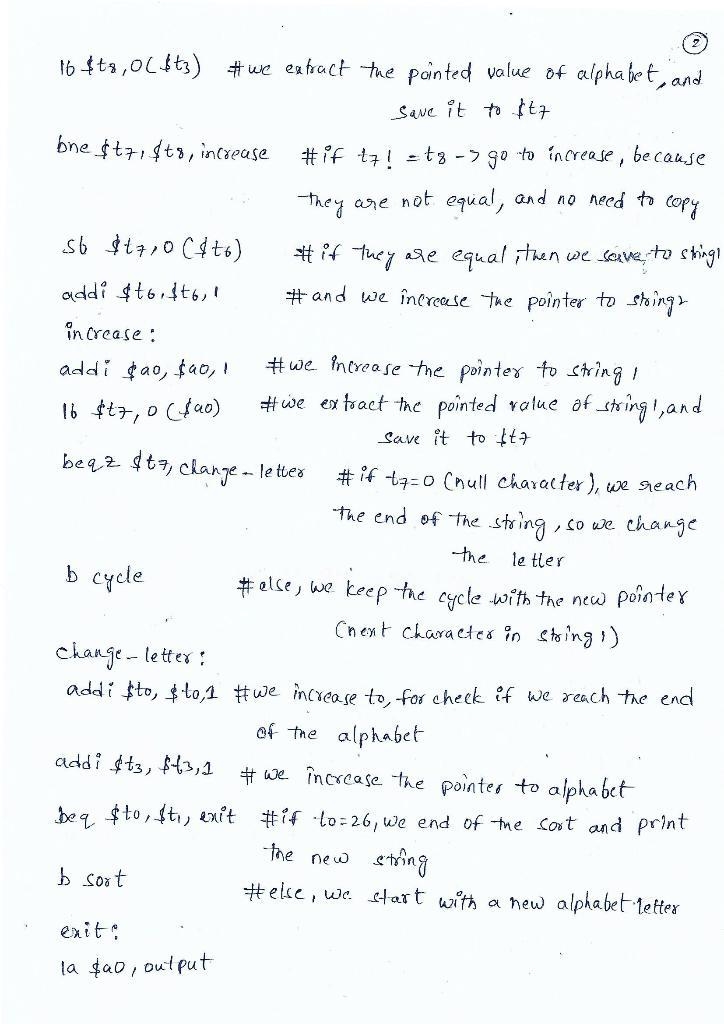 2
lb $t8, 0($t3) #we extract the pointed value of alphabet, and
save it to $t7
bne $t7, $t8, increase #if t7! =t8 -> go to increase, because
they are not equal, and no need to copy
sb $t7, 0($t6) #if they are equal, then we save to string1
addi $t6, $t6, 1 #and we increase the pointer to string2
increase:
addi $a0, $a0, 1 #we increase the pointer to string 1
lb $t7, 0($a0) #we extract the pointed value of string1, and
save it to $t7
beqz $t7, change-letter #if t7=0 (null character), we reach
the end of the string, so we change
the letter
b cycle #else, we keep the cycle with the new pointer
(next character in string1)
change-letter:
addi $t0, $t0, 1 #we increase to, for check if we reach the end
of the alphabet
addi $t3, $t3, 1 #we increase the pointer to alphabet
beq $t0, $t1, exit #if t0=26, we end of the sort and print
the new string
b sort #else, we start with a new alphabet letter
exit:
la $a0, output